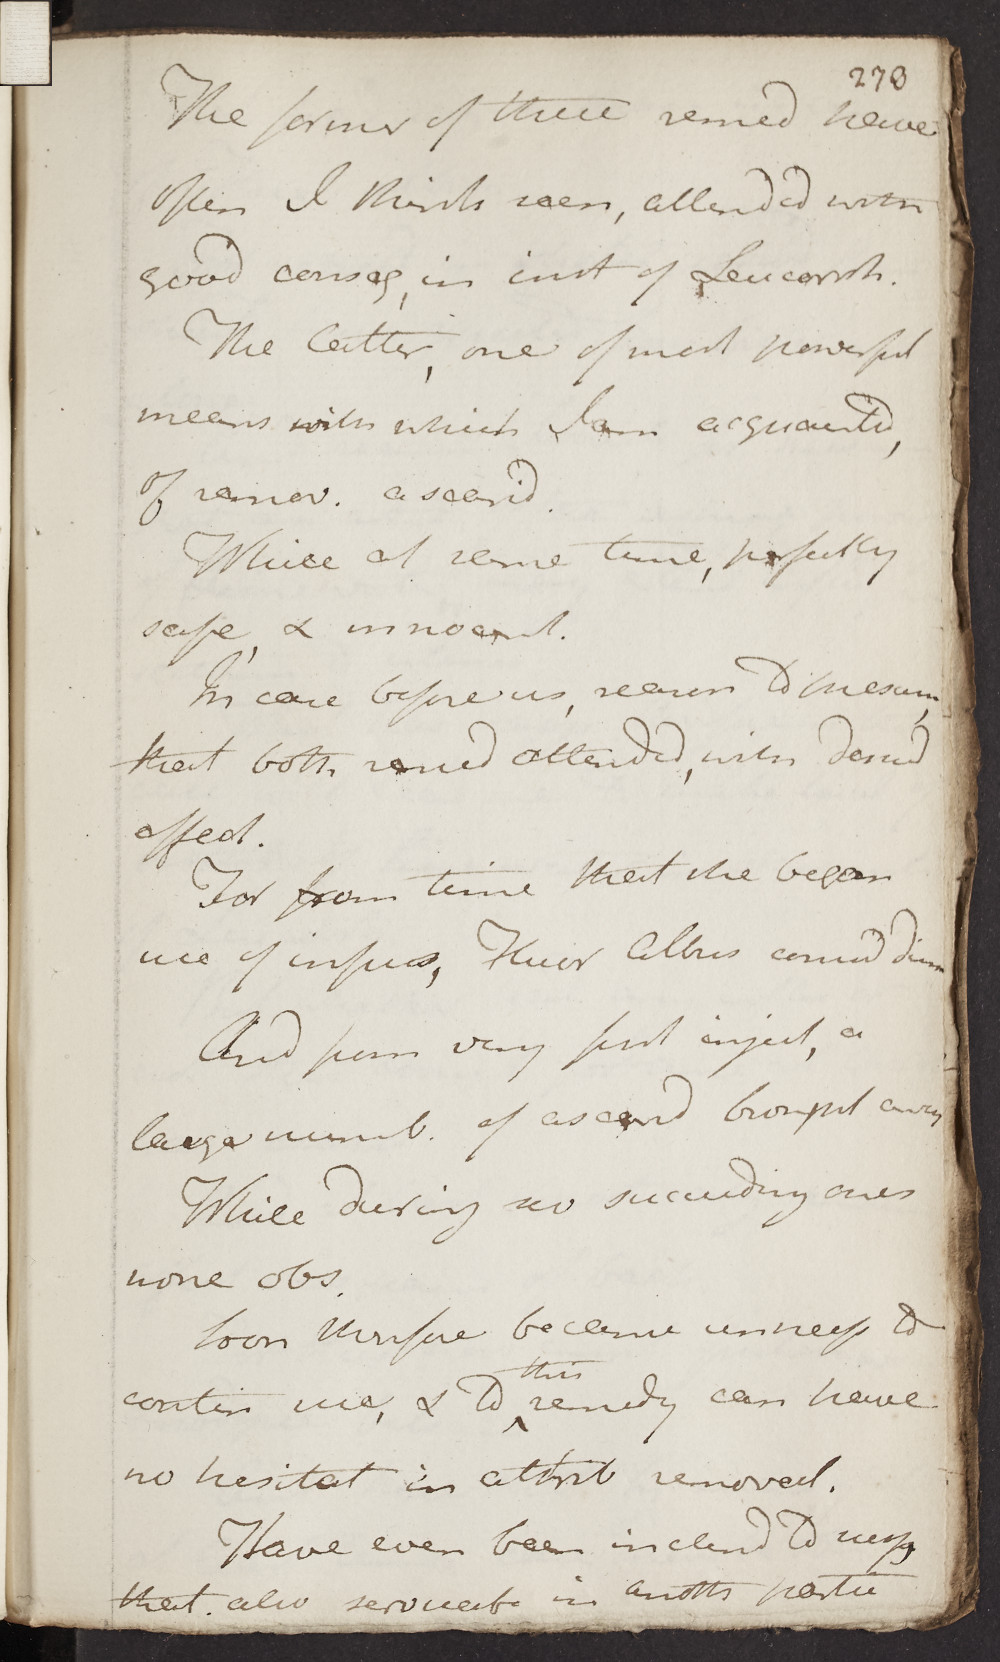 273
The former of these remed have
often I think seen, attended with
good conseq, in inst of Leucorrh.
The latter, one of most powerful
means with which I am acquainted,
of remov. ascarid.
While at same time, perfectly
safe, & innocent.
In case before us, reason to presum,
that both remed attended, with desired
effect.
For from time that she began
use of infus, Fluor Albus contind dimin
And from very first inject, a
large numb. of ascarid brought away
While during two succeeding ones
none obs.
Soon therefore became unnecess to
contin use, & to this remedy can have
no hesitat in attrib removal.
Have even been inclined to
that also serviceable in anoth partic